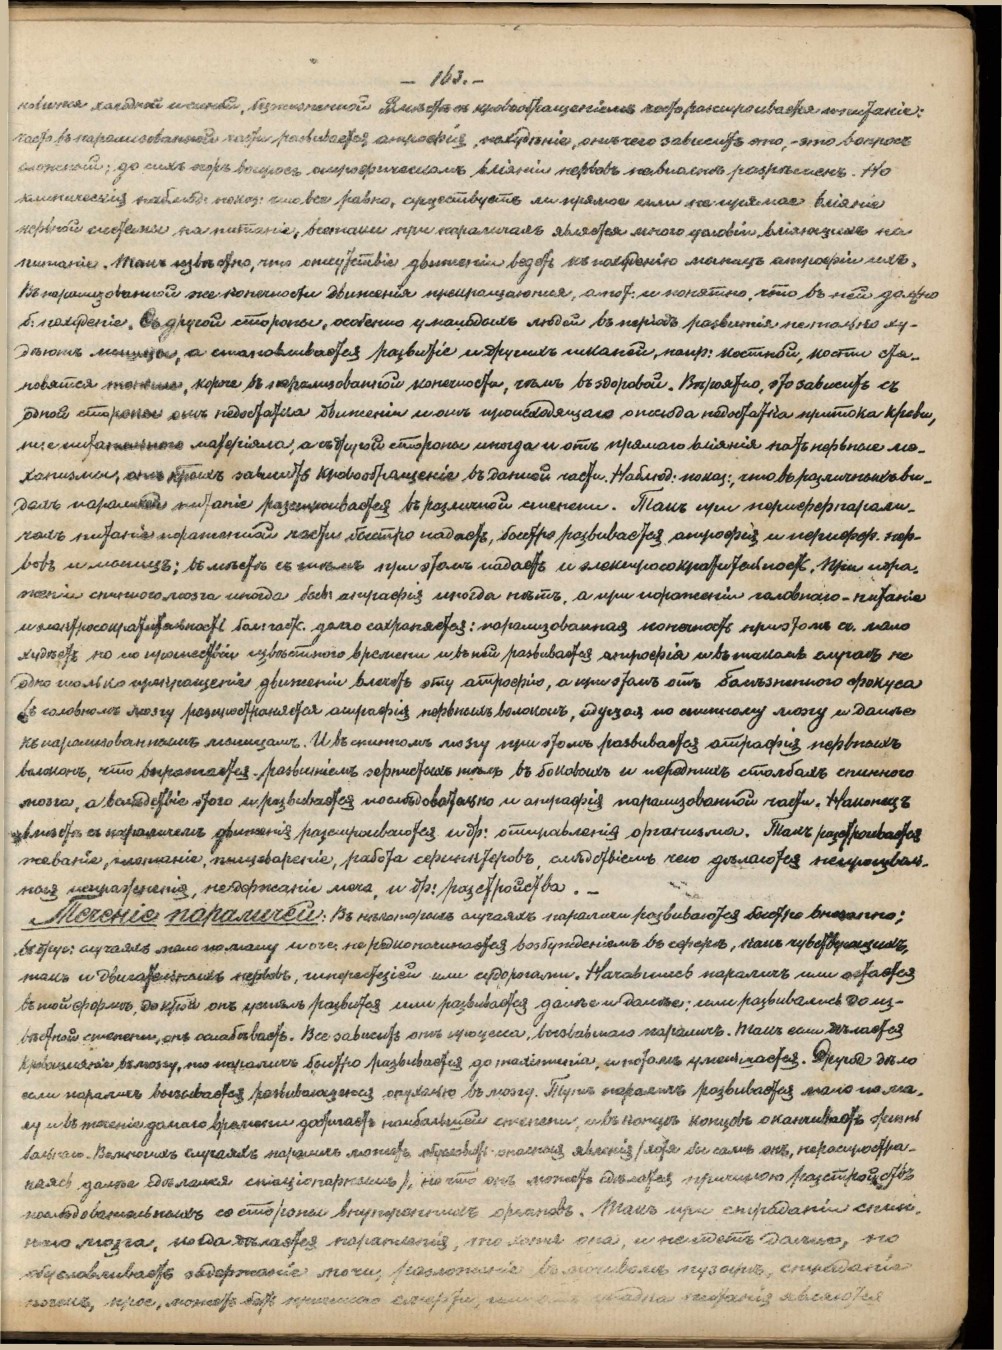 — 163. —
холодной и синей, безжизненной. Вместѣ съ кровообращеніемъ часто разстраивается и питаніе:
часто въ парализованной части развивается атрофія, похудѣніе, отъ чего зависитъ это, — это вопросъ
сложный; до сихъ поръ вопросъ о трофическомъ вліяніи нервовъ не вполнѣ разрѣшенъ. Но
клиническія наблюд: показ: что все равно, существуетъ ли прямое или не прямое вліяніе
нервной системы на питаніе, всетаки при параличахъ является много условій, вліяющихъ на
питаніе. Такъ извѣстно, что отсутствіе движеній ведетъ къ похуденію мышцъ атрофіи ихъ.
Въ парализованной же конечности движенія прекращаются, а пот: и понятно, что въ ней должно
б: похуденіе. Съ другой стороны, особенно у молодыхъ людей въ періодъ развитія не только ху-
дѣютъ мышцы, а останавливается развитіе и другихъ тканей, напр: костной, кости ста-
новятся тоньше, короче въ парализованной конечности, чѣмъ въ здоровой. Вѣроятно, это зависитъ съ
одной стороны отъ недостатка движеній и отъ происходящаго отсюда недостатка притока крови,
питательнаго матеріала, а съ другой стороны иногда и отъ прямого вліянія на тѣ нервные ме-
ханизмы, отъ ктрыхъ зависитъ кровообращеніе въ данной части. Наблюд: показ:, что въ различныхъ ви-
дахъ параличей питаніе разстраивается въ различной степени. Такъ при периферпарали-
чахъ питаніе пораженной части быстро падаетъ, быстро развивается атрофія и перифер. нер-
вовъ и мышцъ; вмѣстѣ съ тѣмъ при этомъ падаетъ и электросократительность. При пора-
женіи спинного мозга иногда бывъ атрофія иногда нѣтъ, а при пораженіи головного — питаніе
и электросократительность бол: част. долго сохраняется: парализованная конечность при этомъ мало
худѣетъ но по прошествіи извѣстного времени и въ ней развивается атрофія и въ такомъ случаѣ не
одно только прекращеніе движеній влечетъ эту атрофію, а при этомъ отъ болѣзненного фокуса
въ головномъ мозгу распространяется атрофія нервныхъ волоконъ, идущая по спинному мозгу и далѣе
къ парализованнымъ мышцамъ. И въ спинномъ мозгу при этомъ развивается атрофія нервныхъ
волоконъ, что выражается развитіемъ зернистыхъ тѣлъ въ боковыхъ и переднихъ столбахъ спинного
мозга, а вслѣдствіе этого и развивается послѣдовательно и атрофія парализованной части. Наконецъ
вмѣстѣ съ параличемъ движенія разстраиваются и др: отправленія организма. Такъ разстраивается
жеваніе, глотаніе, пищевареніе, работа сфинктеровъ, слѣдствіемъ чего дѣлаются непроизволь-
ныя испражненія, недержаніе мочи и др: разстройства. —
Теченіе параличей: Въ нѣкоторыхъ случаяхъ параличи развиваются быстро внезапно;
въ друг: случаяхъ мало по малу и оче: нередко начинается возбужденіемъ въ сферѣ, какъ чувствующихъ,
такъ и двигательныхъ нервовъ, гиперестезіей или судорогами. Начавшись параличъ или остается
въ той формѣ, до кторой онъ успѣлъ развится или развивается далѣе и далѣе; или развившись до из-
вѣстной степени, онъ ослабѣваетъ. Все зависитъ отъ процесса, вызвавшаго параличъ. Такъ если дѣлается
кровоизліяніе въ мозгу, то параличъ быстро развивается до maximum'а, и потомъ уменьшается. Другое дѣло
если параличъ вызывается развивающеюся опухолью въ мозгу. Тутъ параличъ развивается мало по ма-
лу и въ теченіе долгаго времени достигаетъ наибольшей степени, и въ концѣ концовъ оканчивается
Во многихъ случаяхъ параличъ можетъ обусловить опасныя явленія (хотя бы самъ онъ, не распростра-
няясь далѣе сдѣлался стаціонарнымъ), но что онъ можетъ сдѣлаться причиною разстройствъ
послѣдовательныхъ со стороны внутреннихъ органовъ. Такъ при страданіи спин-
ного мозга, когда дѣлается параплегія, то хотя она, и не идетъ дальше, но
обусловливаетъ задержаніе мочи, разложеніе въ мочевомъ пузырѣ, страданіе
почекъ, проч, можетъ быть причиною смерти, питанія являются